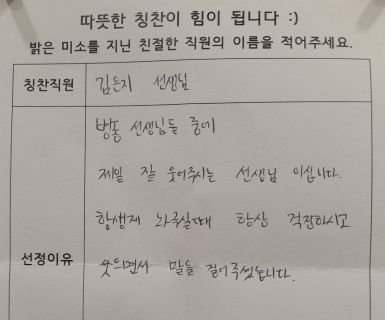 따뜻한 칭찬이 힘이 됩니다 :)
밝은 미소를 지닌 친절한 직원의 이름을 적어주세요.
칭찬직원 김은지 선생님
병동 선생님들 중에
제일 잘 웃어주시는 선생님 이십니다.
항생제 놔주실때 항상 걱정하시고
선정이유
웃으면서 말을 걸어주셨습니다.